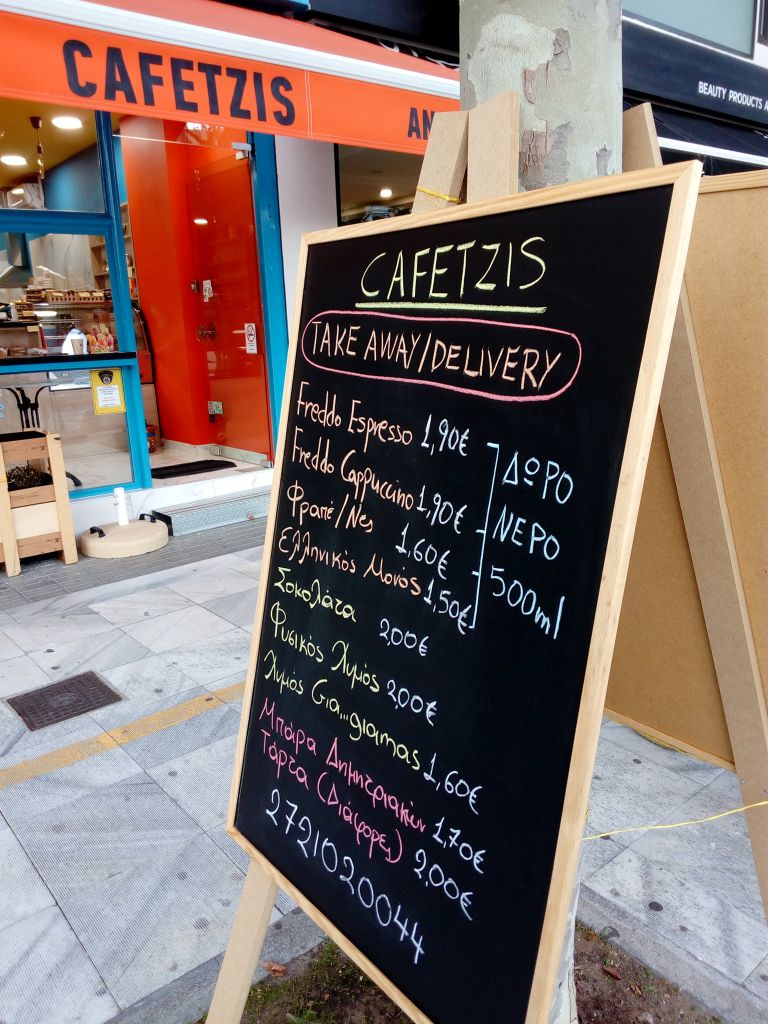 CAFETZIS
AN
BEAUTY PRODUCTS A
CAFETZIS
TAKE AWAY/DELIVERY
Freddo Espresso 1,90€
Freddo Cappuccino 1,90€
Φραπέ/Νες 1,60€
Ελληνικός Μονός 1,50€
ΔΩΡΟ
ΝΕΡΟ
500ml
Σοκολάτα 2,00€
Φυσικός Χυμός 2,00€
Χυμός Gia...giamas 1,60€
Μπάρα Δημητριακών 1,70€
Τάρτα (Διάφορες) 2,00€
2721020044